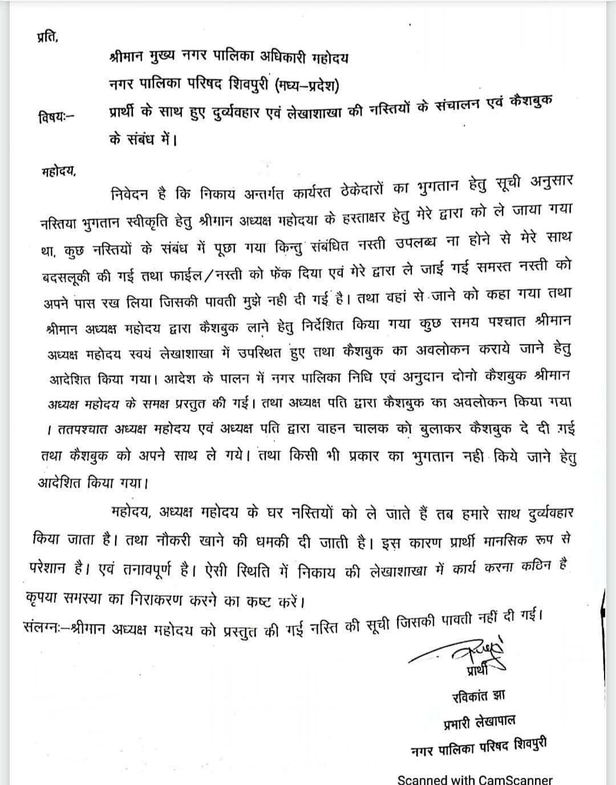 प्रति,
श्रीमान मुख्य नगर पालिका अधिकारी महोदय
नगर पालिका परिषद शिवपुरी (मध्य–प्रदेश)
विषयः– प्रार्थी के साथ हुए दुर्व्यवहार एवं लेखाशाखा की नस्तियों के संचालन एवं कैशबुक
के संबंध में।
महोदय,
निवेदन है कि निकाय अन्तर्गत कार्यरत ठेकेदारों का भुगतान हेतु सूची अनुसार
नस्तिया भुगतान स्वीकृति हेतु श्रीमान अध्यक्ष महोदया के हस्ताक्षर हेतु मेरे द्वारा को ले जाया गया
था, कुछ नस्तियों के संबंध में पूछा गया किन्तु संबंधित नस्ती उपलब्ध ना होने से मेरे साथ
बदसलूकी की गई तथा फाईल/नस्ती को फेंक दिया एवं मेरे द्वारा ले जाई गई समस्त नस्ती को
अपने पास रख लिया जिसकी पावती मुझे नही दी गई है। तथा वहां से जाने को कहा गया तथा
श्रीमान अध्यक्ष महोदय द्वारा कैशबुक लाने हेतु निर्देशित किया गया कुछ समय पश्चात श्रीमान
अध्यक्ष महोदय स्वयं लेखाशाखा में उपस्थित हुए तथा कैशबुक का अवलोकन कराये जाने हेतु
आदेशित किया गया। आदेश के पालन में नगर पालिका निधि एवं अनुदान दोनो कैशबुक श्रीमान
अध्यक्ष महोदय के समक्ष प्रस्तुत की गई। तथा अध्यक्ष पति द्वारा कैशबुक का अवलोकन किया गया
। ततपश्चात अध्यक्ष महोदय एवं अध्यक्ष पति द्वारा वाहन चालक को बुलाकर कैशबुक दे दी गई
तथा कैशबुक को अपने साथ ले गये। तथा किसी भी प्रकार का भुगतान नही किये जाने हेतु
आदेशित किया गया।
महोदय, अध्यक्ष महोदय के घर नस्तियों को ले जाते हैं तब हमारे साथ दुर्व्यवहार
किया जाता है। तथा नौकरी खाने की धमकी दी जाती है। इस कारण प्रार्थी मानसिक रूप से
परेशान है। एवं तनावपूर्ण है। ऐसी स्थिति में निकाय की लेखाशाखा में कार्य करना कठिन है
कृपया समस्या का निराकरण करने का कष्ट करें।
संलग्नः–श्रीमान अध्यक्ष महोदय को प्रस्तुत की गई नस्ति की सूची जिसकी पावती नहीं दी गई।
प्रार्थी
रविकांत झा
प्रभारी लेखापाल
नगर पालिका परिषद शिवपुरी
Scanned with CamScanner